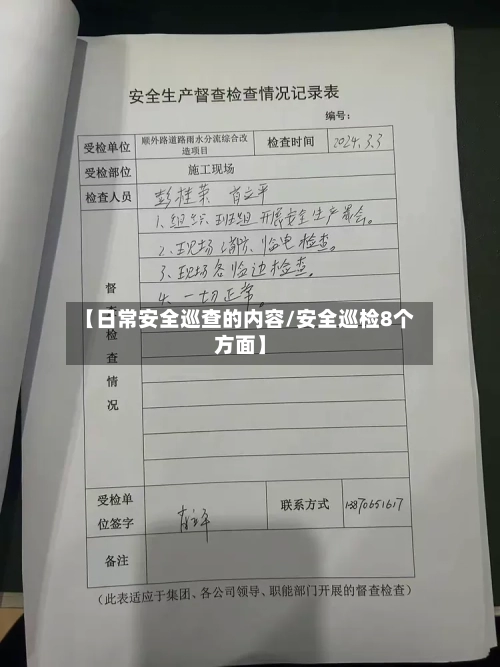 安全生产督查检查情况记录表
编号：
受检单位 顺外路道路雨水分流综合改造项目 检查时间 2024.3.3
受检部位 施工现场
检查人员 彭桂荣 肖立平
1、组织班组开展安全生产晨会。
2、现场消防、临电检查。
3、现场各临边检查。
4、一切正常。
【日常安全巡查的内容/安全巡检8个
方面】
督
检
查
情
况
受检单
位签字
联系方式 13870651617
备注
（此表适应于集团、各公司领导、职能部门开展的督查检查）